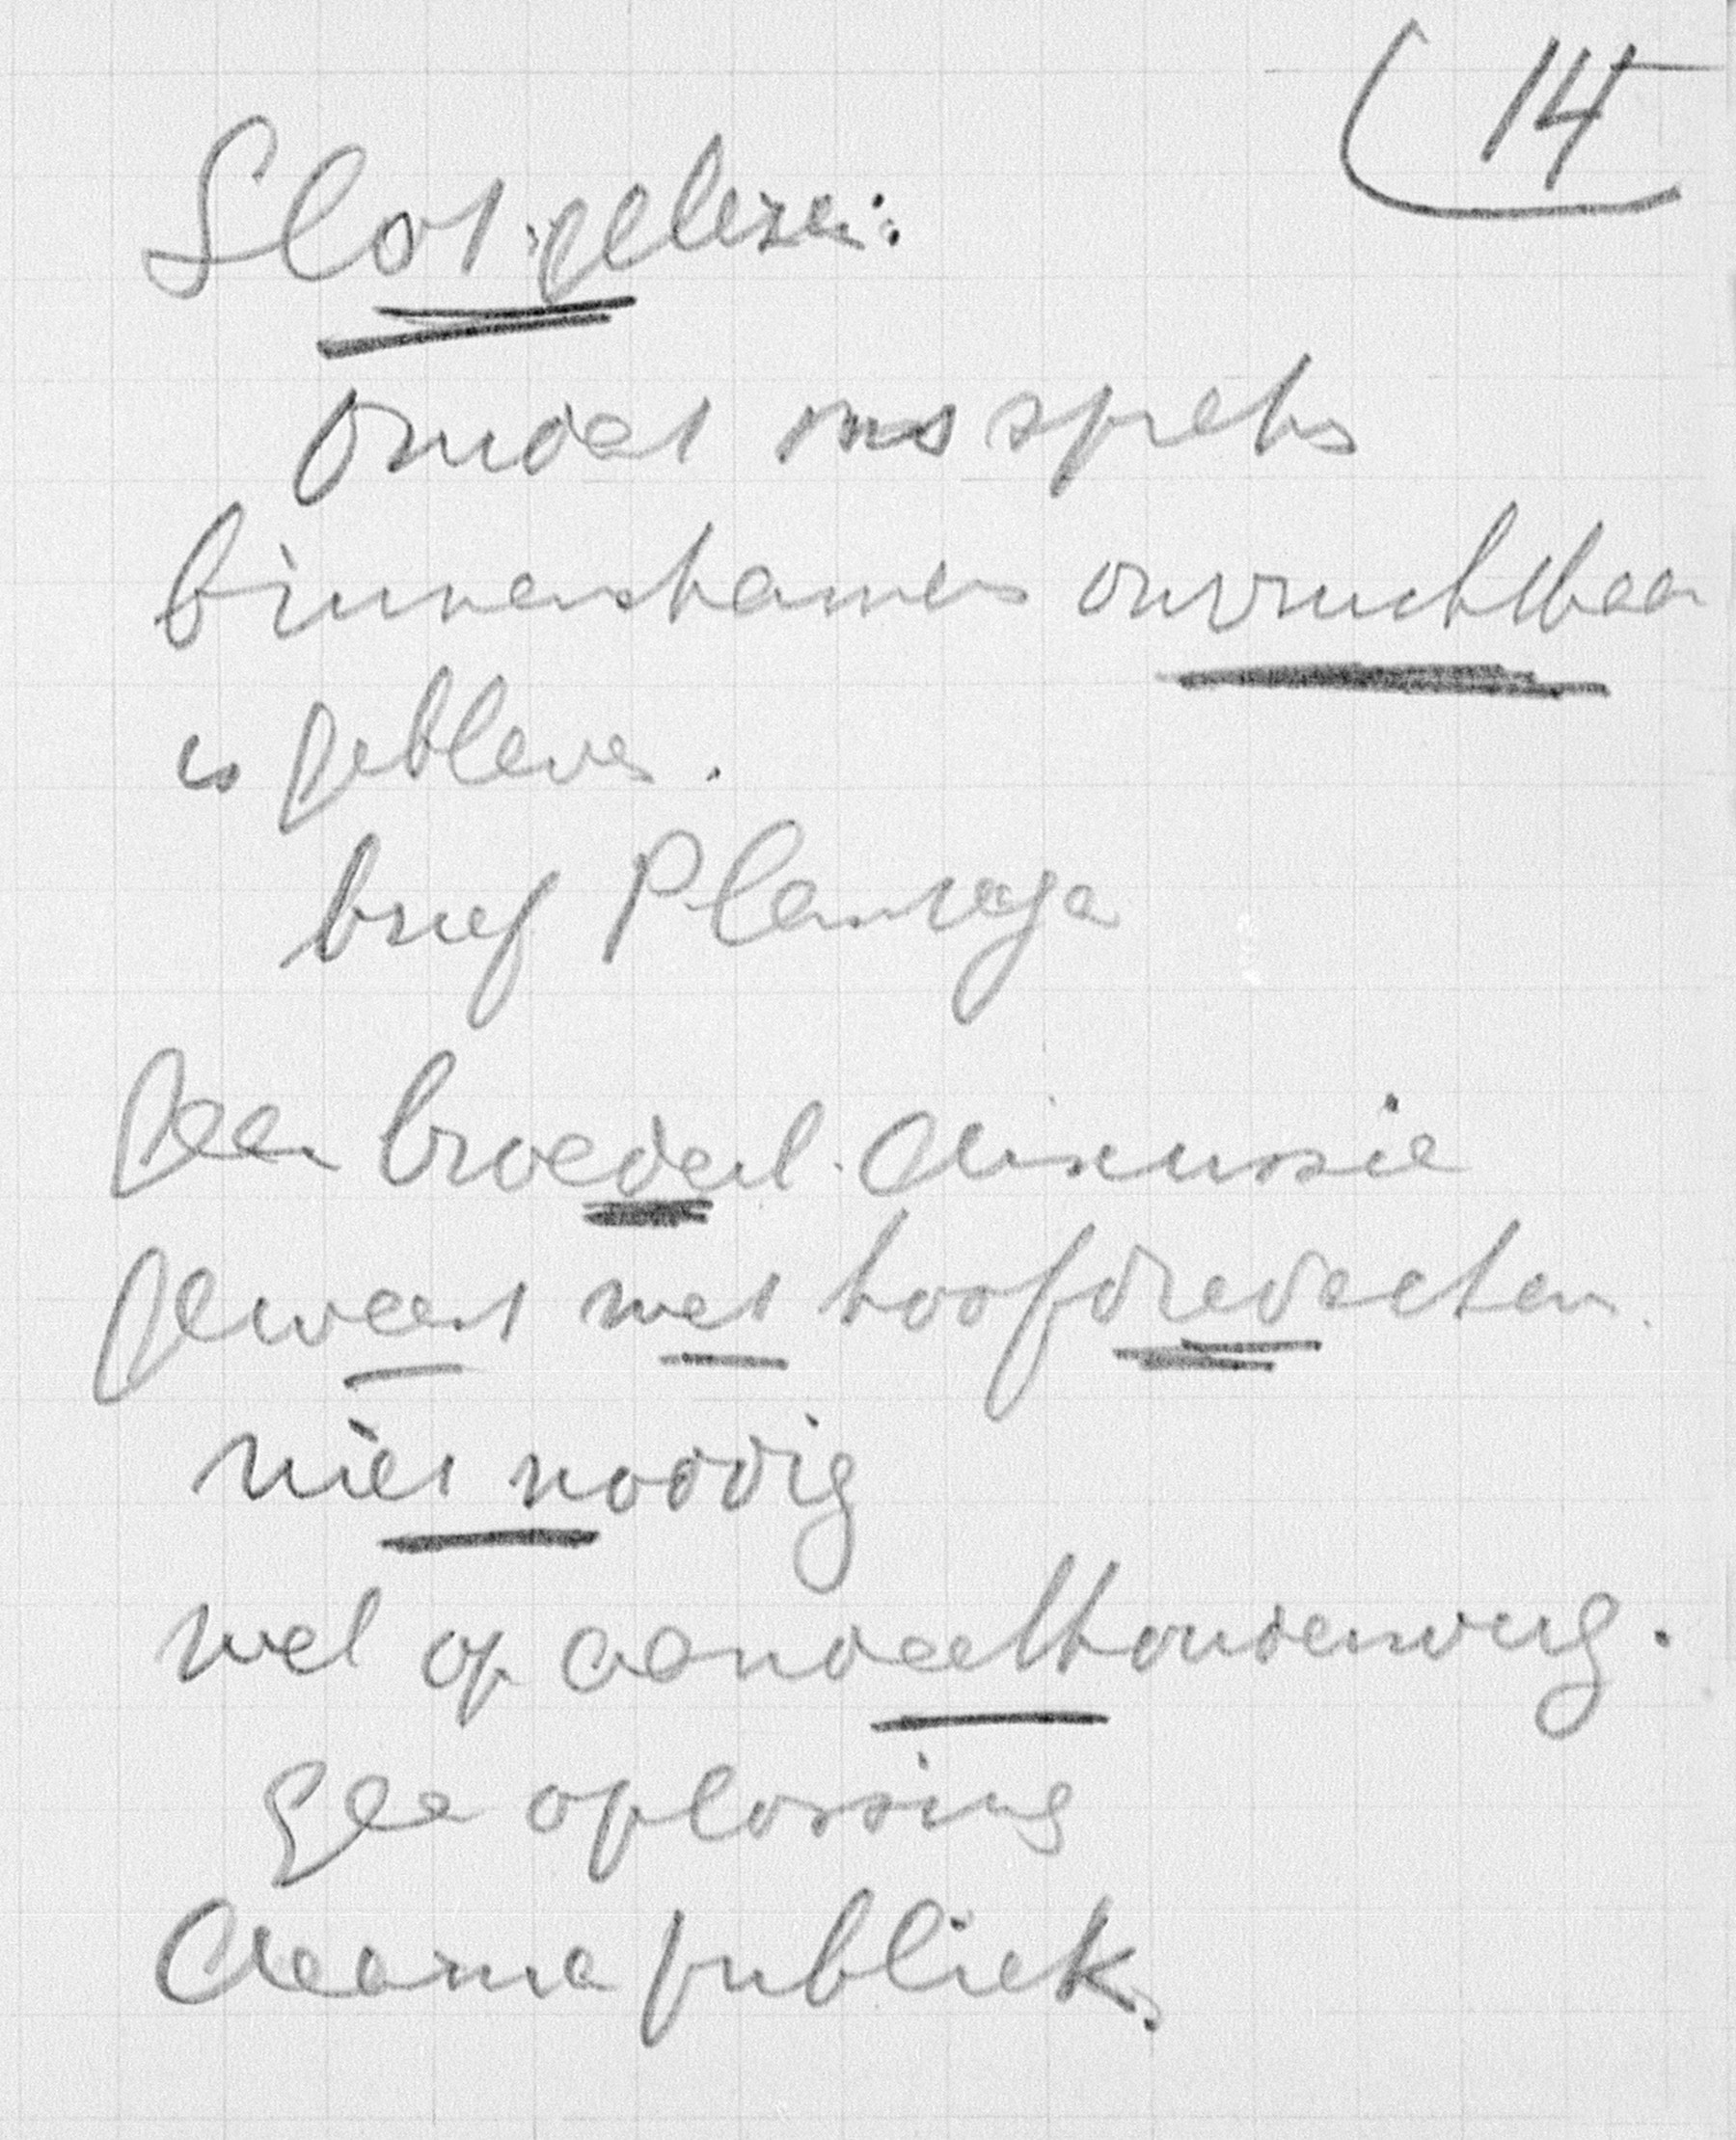 14
Slot gelezen:
Omdat ons spreken
binnenskamers onvruchtbaar
is gebleven.
brief
Geen broederl. discussie
geweest met hoofdredacteur.
niet noodig
wel op aandeelhoudersverg.
Geen oplossing
Daarna publiek.